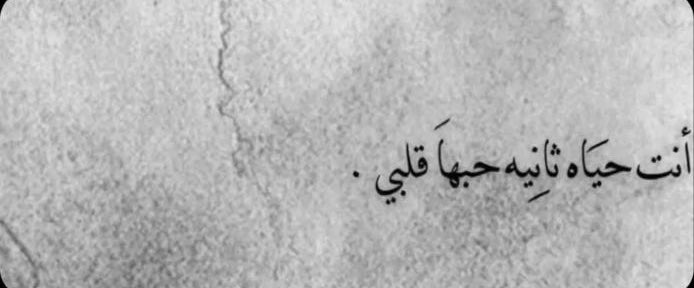 أنت حيَاه ثانِيه حبهاَ قلبي .